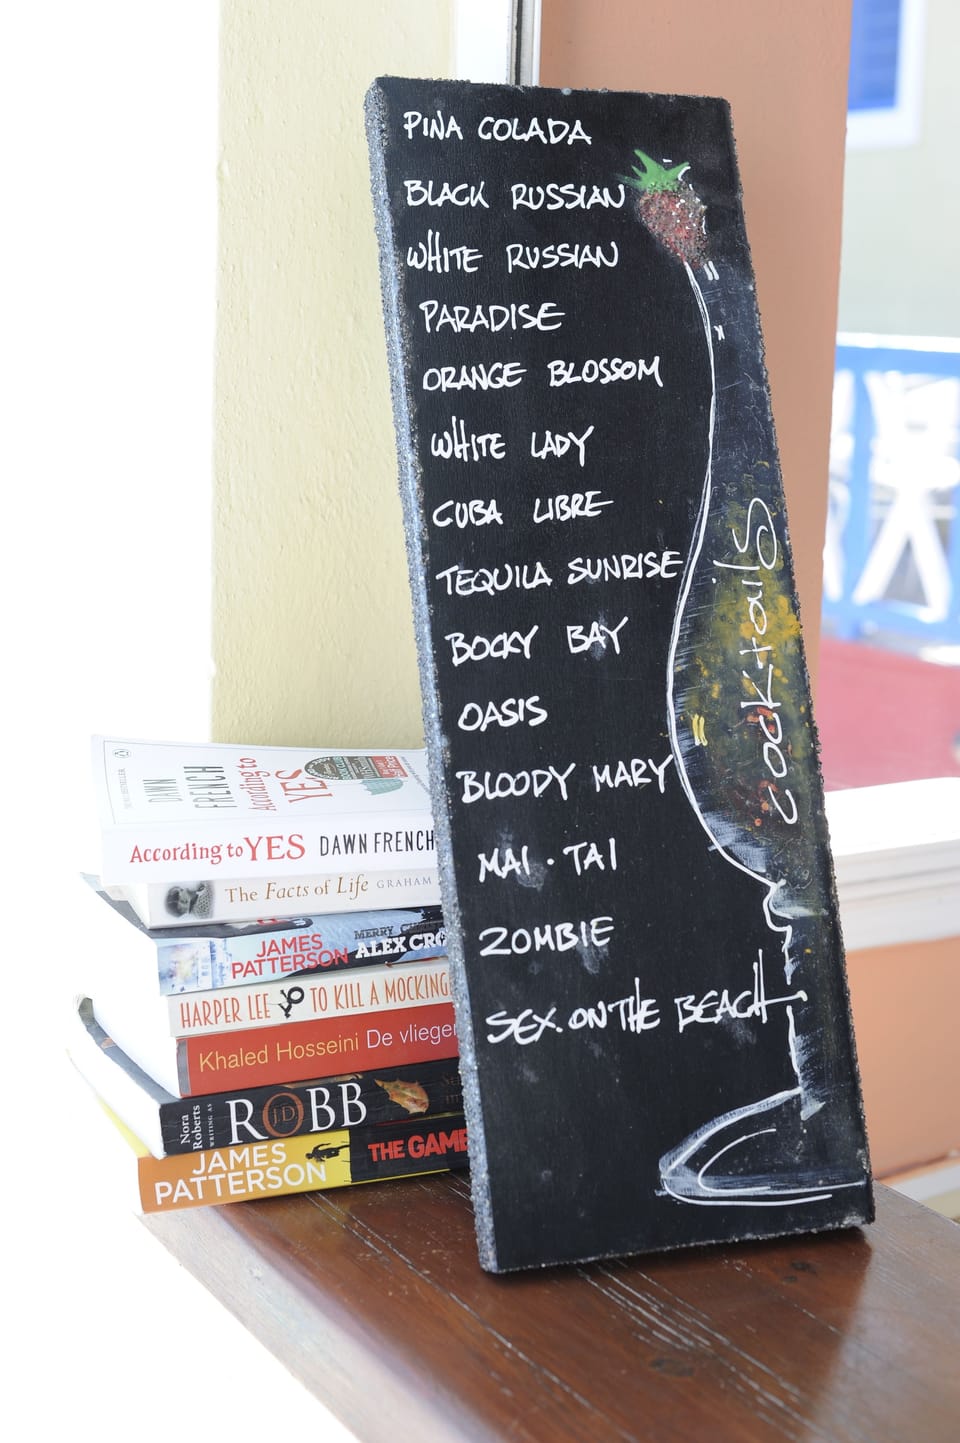 PINA COLADA
BLACK RUSSIAN
WHITE RUSSIAN
PARADISE
ORANGE BLOSSOM
WHITE LADY
CUBA LIBRE
TEQUILA SUNRISE
BOCKY BAY
OASIS
BLOODY MARY
MAI · TAI
ZOMBIE
SEX. ON THE BEACH
cocktails
DAWN
FRENCH
According to
YES
According to YES DAWN FRENCH
The Facts of Life GRAHAM
JAMES
PATTERSON
MERRY
ALEX
HARPER LEE TO KILL A MOCKING
Khaled Hosseini De vlieger
Nora
Roberts
WRITING AS
JD
ROBB
JAMES
PATTERSON
THE GAME